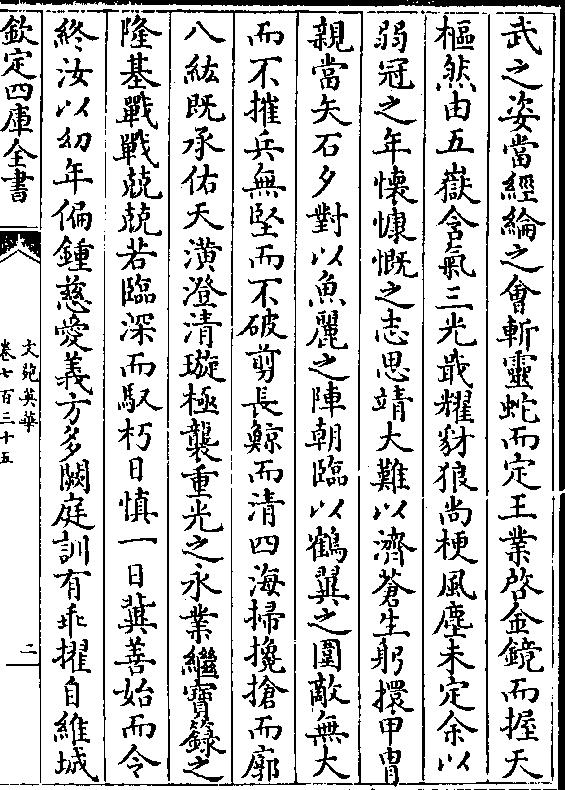 武之姿當經綸之會斬靈蛇而定王業啓金鏡而握天
樞然由五嶽含氣三光戢耀豺狼尚梗風塵未定余以
弱冠之年懷慷慨之志思靖大難以濟蒼生躬擐甲胄
親當矢石夕對以魚麗之陣朝臨以鶴翼之圍敵無大
而不摧兵無堅而不破剪長鯨而清四海掃攙搶而廓
八紘既承佑天潢澄清璇極襲重光之永業繼寶籙之
隆基戰戰兢兢若臨深而馭朽日慎一日冀善始而令
終汝以幼年偏鍾慈愛義方多闕庭訓有乖擢自維城
欽定四庫全書
文苑英華
卷七百三十五
二